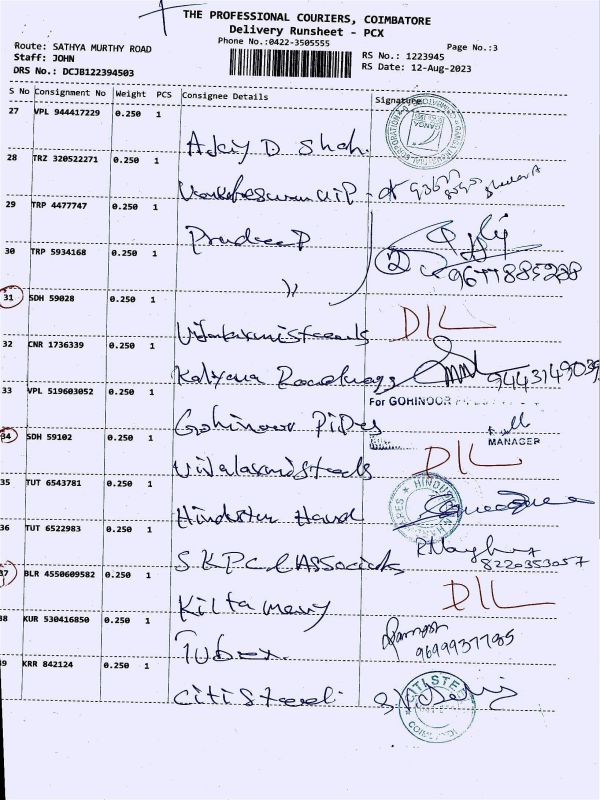 THE PROFESSIONAL COURIERS, COIMBATORE
Delivery Runsheet - PCX
Phone No.:0422-3505555
Page No.:3
Route: SATHYA MURTHY ROAD
Staff: JOHN
DRS No.: DCJB122394503
RS No.: 1223945
RS Date: 12-Aug-2023
S No Consignment No Weight PCS Consignee Details Signature
27 VPL 944417229 0.250 1
Ajay D Shah.
28 TRZ 320522271 0.250 1
29 TRP 4477747 0.250 1
Pradeep
30 TRP 5934168 0.250 1
2
9677885288
31 SDH 59028 0.250 1
DIL
32 CNR 1736339 0.250 1
Kalyana
9443149039
33 VPL 519603052 0.250 1
For GOHINOOR
Gohinoor Pipes
MANAGER
34 SDH 59102 0.250 1
Vijalaxmisteels
DIL
35 TUT 6543781 0.250 1
Hindustan Hard
36 TUT 6522983 0.250 1
S.K.P.C & Associats
8220353057
37 BLR 4550609582 0.250 1
DIL
38 KUR 530416850 0.250 1
Tubex
9699937785
39 KRR 842124 0.250 1
Citi Steel
CITI STEEL